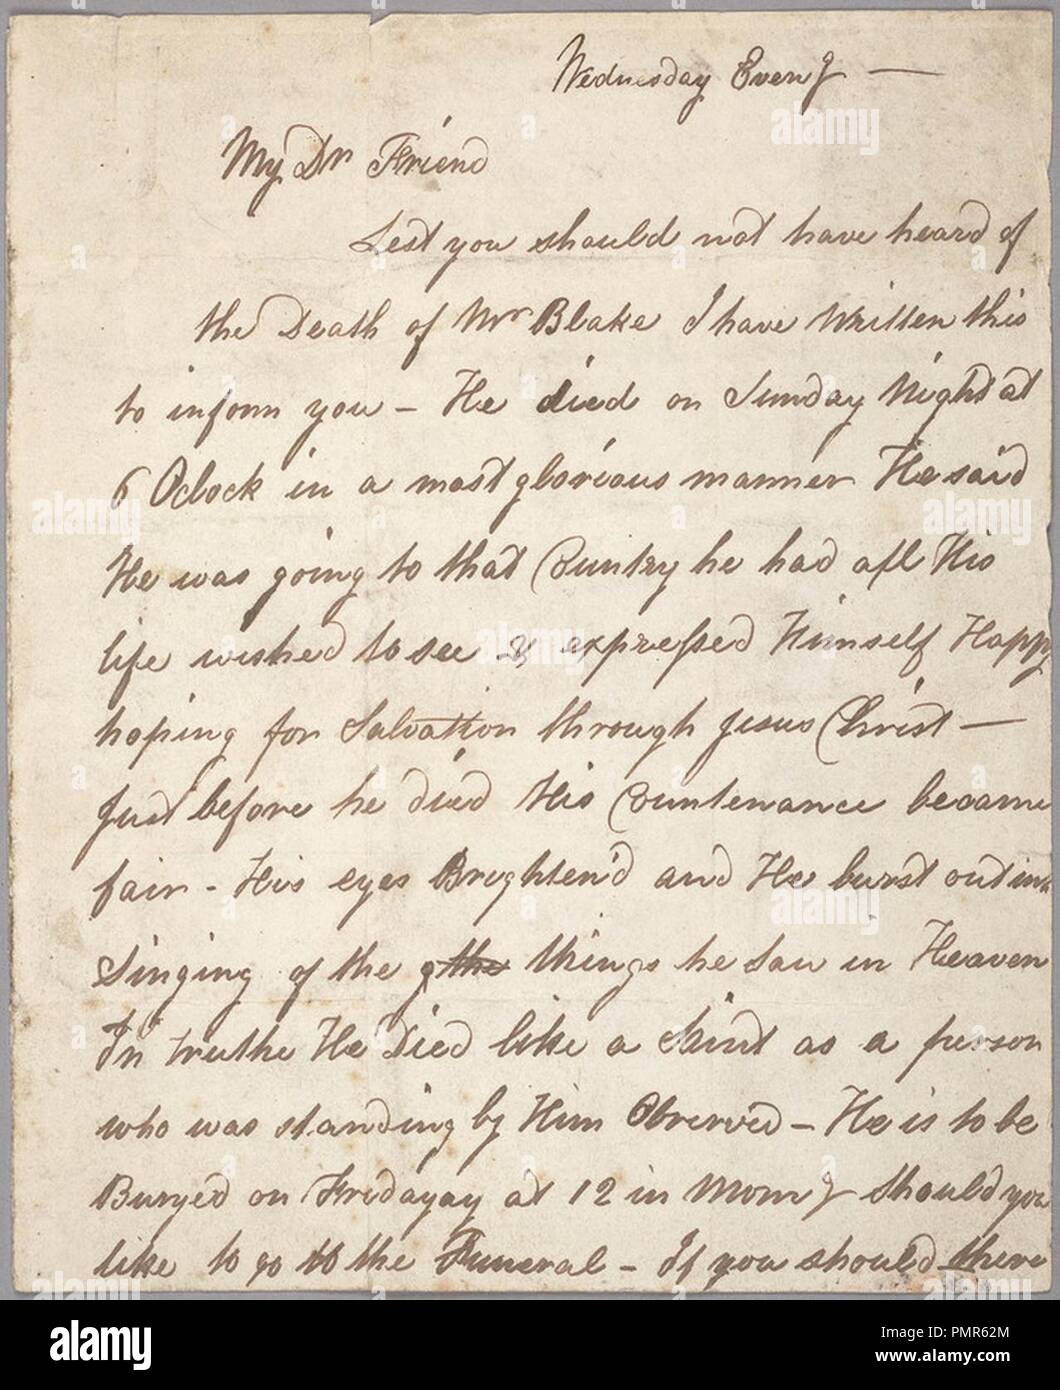 Wednesday Eveng —
My Dr Friend
Lest you should not have heard of
the Death of Mr Blake I have Written this
to inform you – He died on Sunday Night at
6 Oclock in a most glorious manner He said
He was going to that Country he had all His
life wished to see & expressed Himself Happy
hoping for Salvation through Jesus Christ —
Just before he died His Countenance became
fair - His eyes Brighten'd and He burst out in
Singing of the the things he Saw in Heaven
In truthe He Died like a Saint as a person
who was standing by Him Obrerved – He is to be
Buryed on Fridayay at 12 in Morng Should you
like to go to the Funeral – If you should there
alamy
Image ID: PMR62M
www.alamy.com